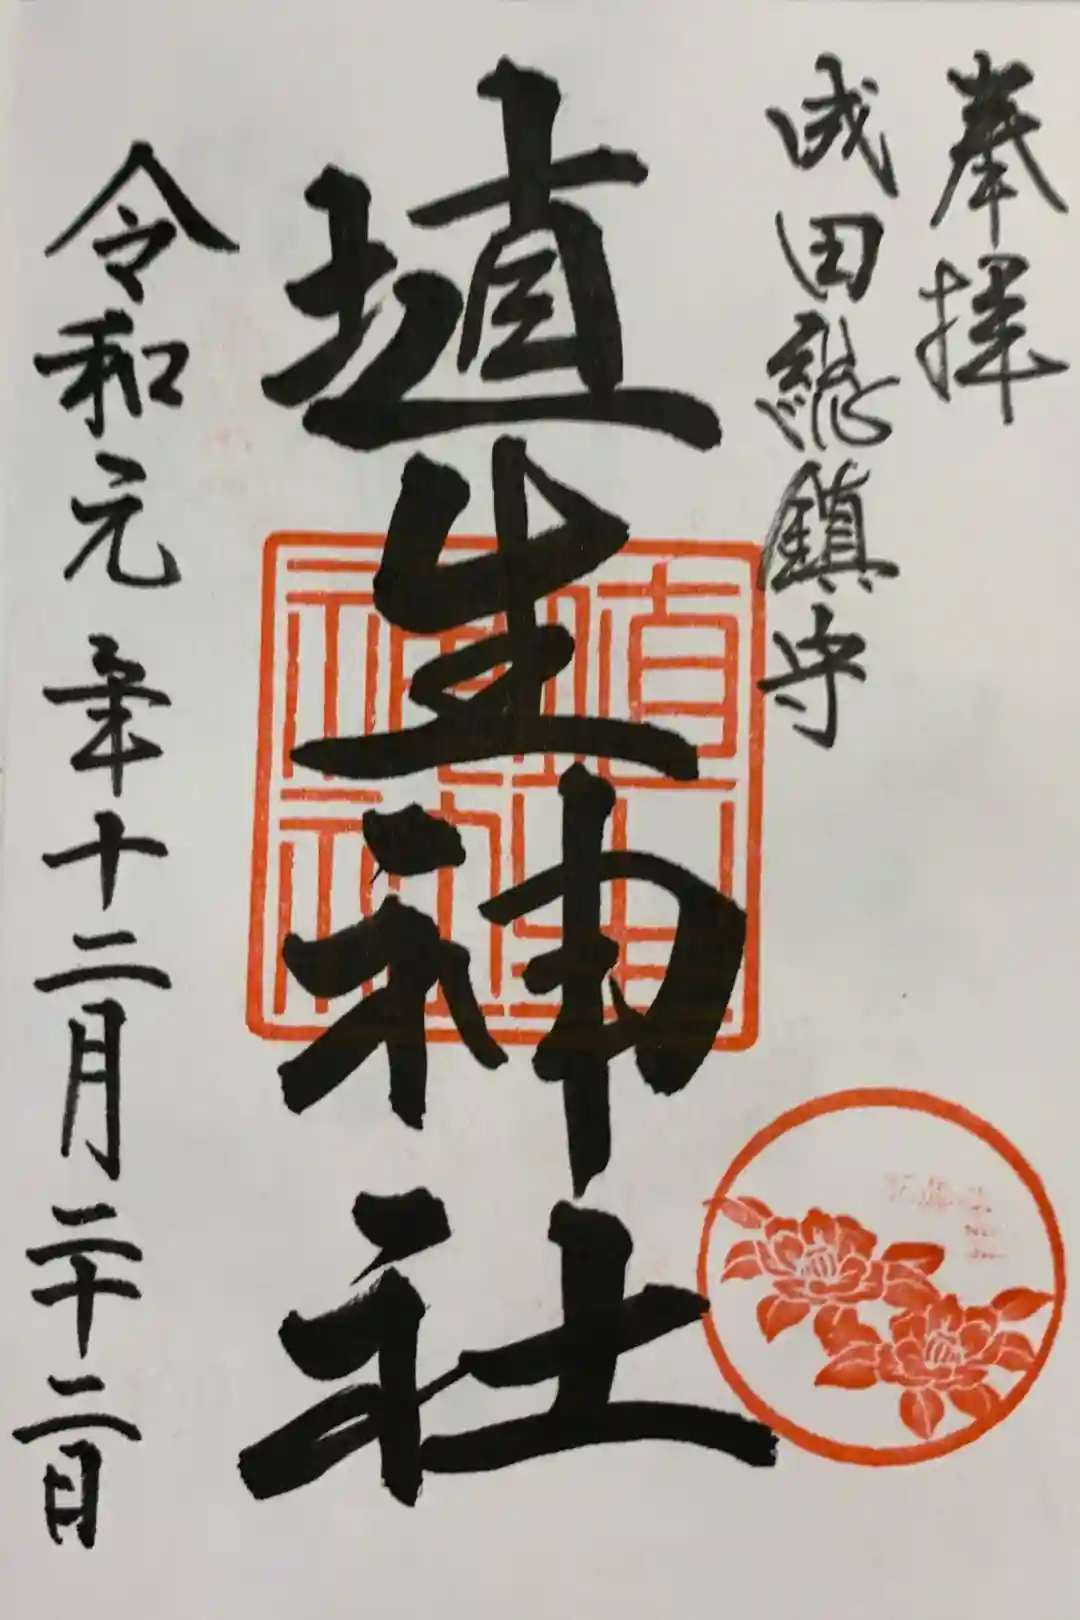 奉拝
成田総鎮守
埴生神社
埴生神社
令和元年十二月二十二日